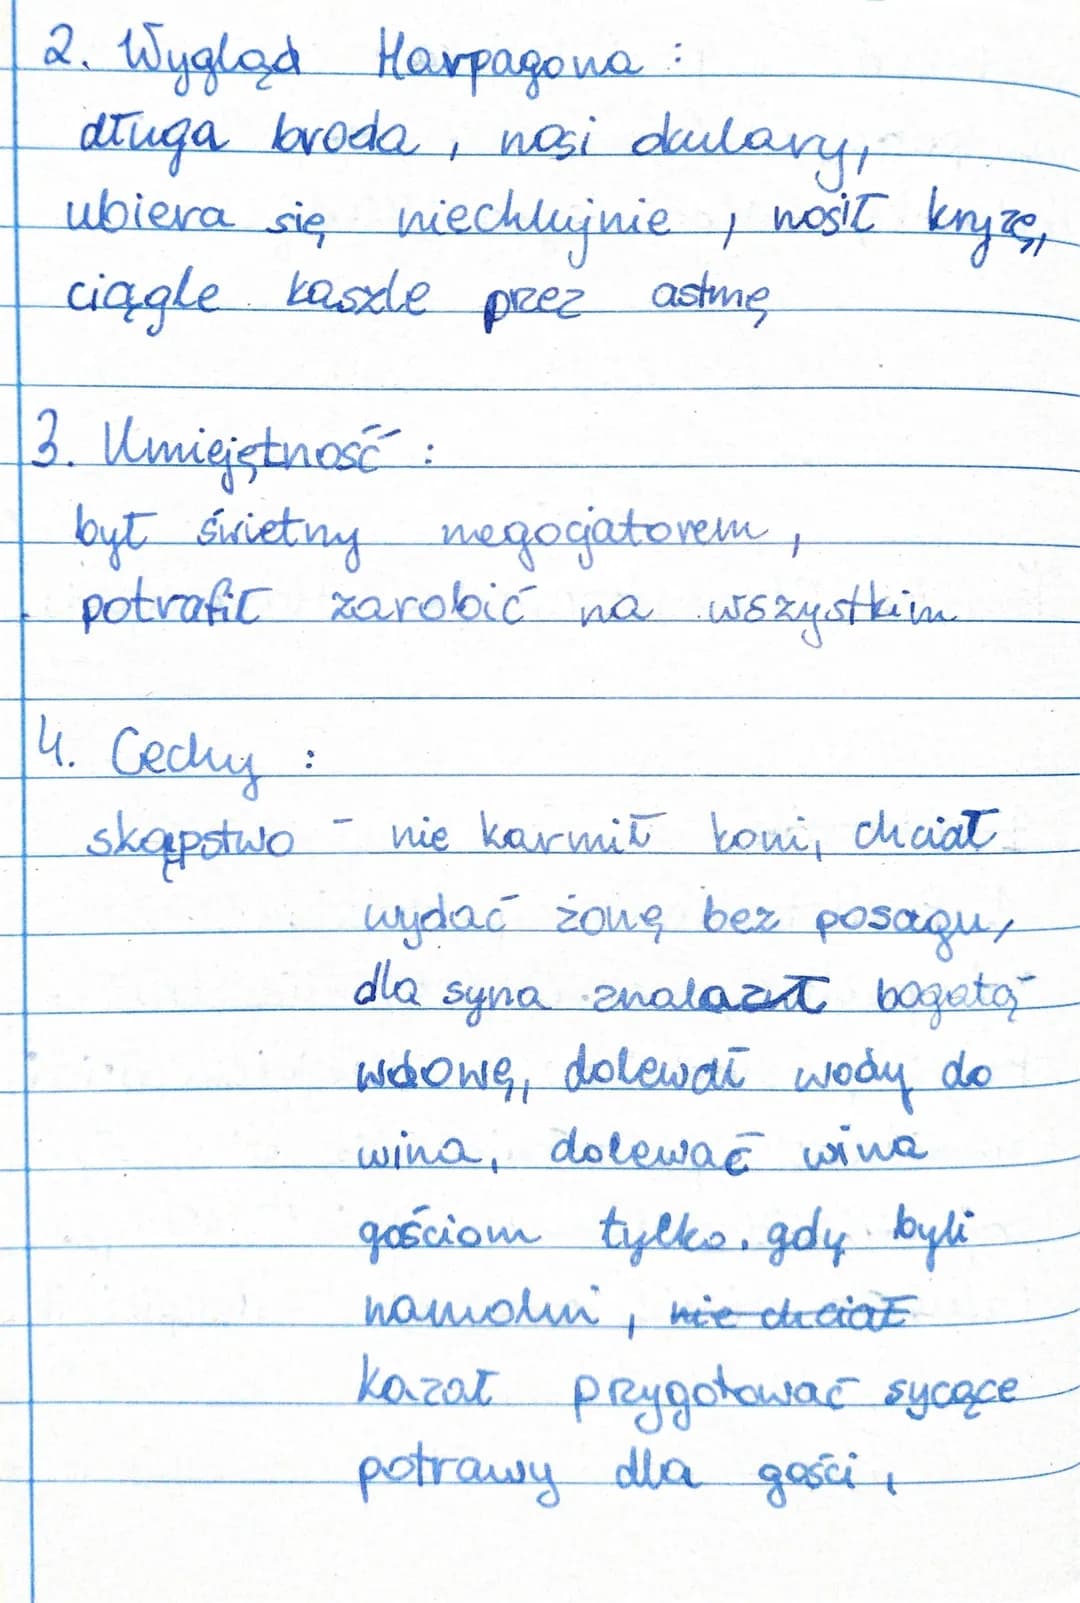 2. Wygląd Harpagona :
długa broda, nosi okulary,
ubiera się niechlujnie, nosił kryzę,
ciągle kaszle przez astmę
3. Umiejętność :
był świetny negocjatorem,
potrafił zarobić na wszystkim
4. Cechy :
skąpstwo - nie karmił koni, chciał
wydać żonę bez posagu,
dla syna znalazł bogatą
wdowę, dolewał wody do
wina, dolewać wina
gościom tylko. gdy byli
namolni, nie chciał
kazał przygotować sycące
potrawy dla gości,